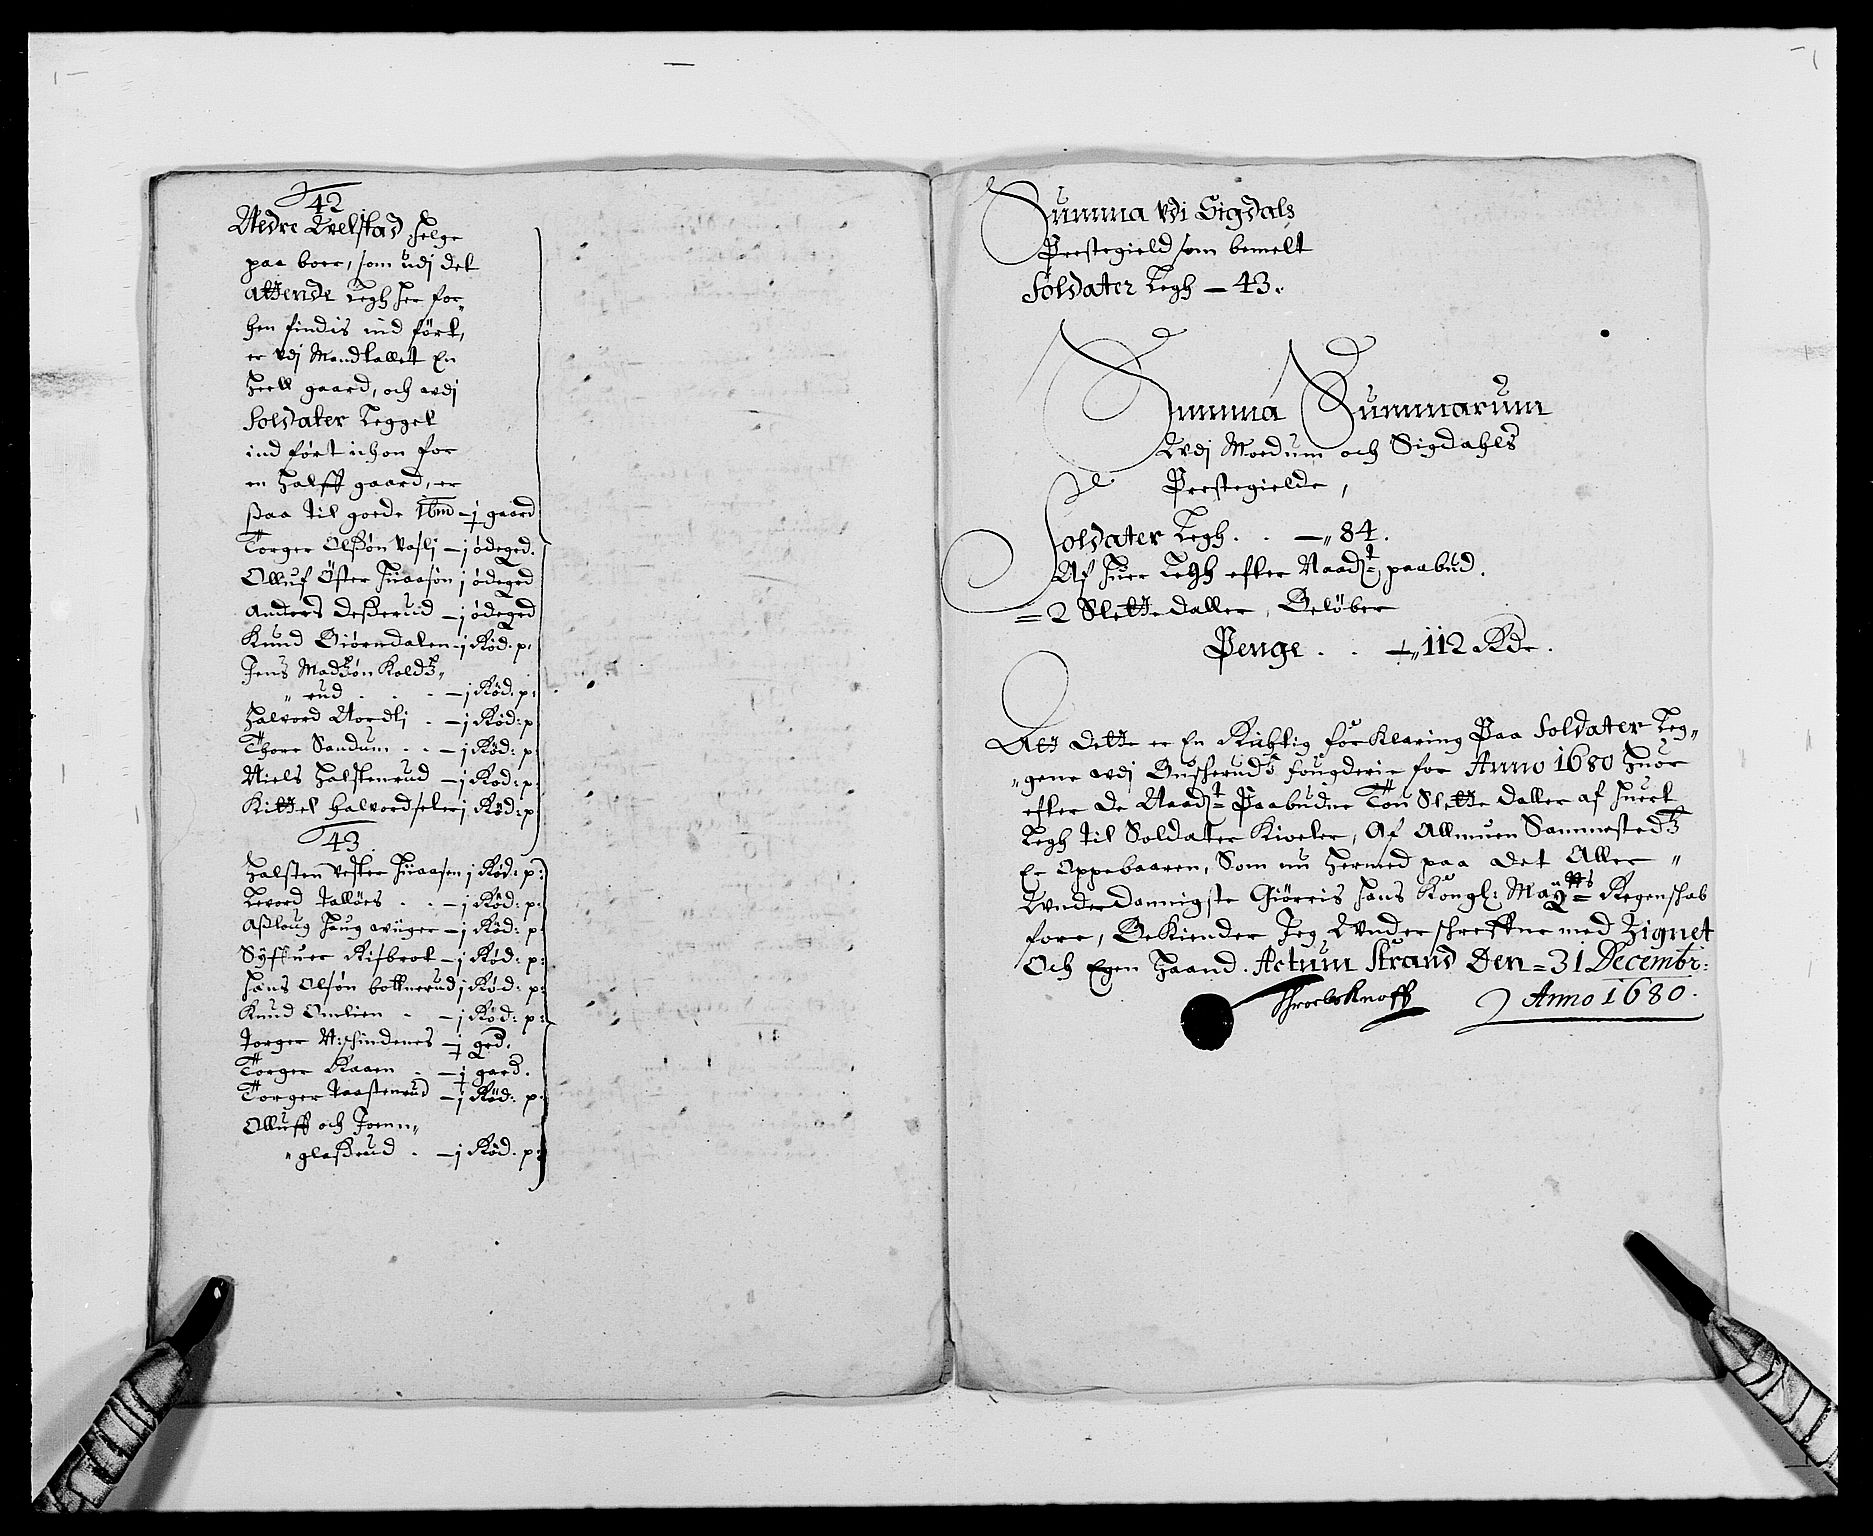 42
Nedre Qvelstad Helge
paa boer, som udj det
attende Legh her for„
hen findis ind ført,
er vdj Mandtallet En
heell gaard, och wdj
Soldater Legget
ind ført ichon for
en halff gaard, er
ßaa til goede ½ gaard
Torger Olßøn Vaslj — j ødeged.
Olluf Öster j ødeged
Anders Deßerud — j ødeged
Knud Giörendalen — j Rød. p:
Jens Madtzøn Koldtz„
„rud . . . — j Rød: p:
Halvord Nordlj . — j Rød: p
Thore Sandum . . — j Rød: p:
Niels Halstenrud — j Rød: p:
Kittel Halvordseter j Rød: p
43
Halsten vester j Rød: p:
Levord Talløes . . — j Rød: p:
Aßloug Haugwiiger — j Rød: p:
Syffuer Risbrot — j Rød: p:
Hans Olsøn bottnerud j Rød: p:
Knud Omlien . — j Rød: p:
Torger — ½ ged.
Torger Kaaen . — ½ gard.
Torger Taastenrud — j Rød: p:
Olluff och Joenn„
„glaßrud . — j Rød. p:
Summa vdi Sigdals
Prestegield som bemelt
Soldater Legh — 43.
Summa Summarum
Wdj Modum och Sigdahls
Prestegielde,
Soldater Legh . . —„ 84.
Af huer Legh efter Naadst paabud.
= 2 Slette daller, Belöber
Penge . . —„ 112 Rdr.
Att dette er En Richtig forKlaring Paa Soldater Leg„
„gene wdj Buscheruds fougderie for Anno 1680 huor
efter de Naadst Paabudne Tou Slette daller af huert
Legh til Soldater Kioeler, Af Allmuen Sammestedtz
Er Oppebaaren, Som nu hermed paa det Aller„
Vnderdannigste Giörris Hans Kongl: Mayts Regenschab
fore, BeKiender Jeg Vnderschreffne med Zignet
Och Egen Haand. Actum Strand Den = 31 Decembr:
Anno 1680.